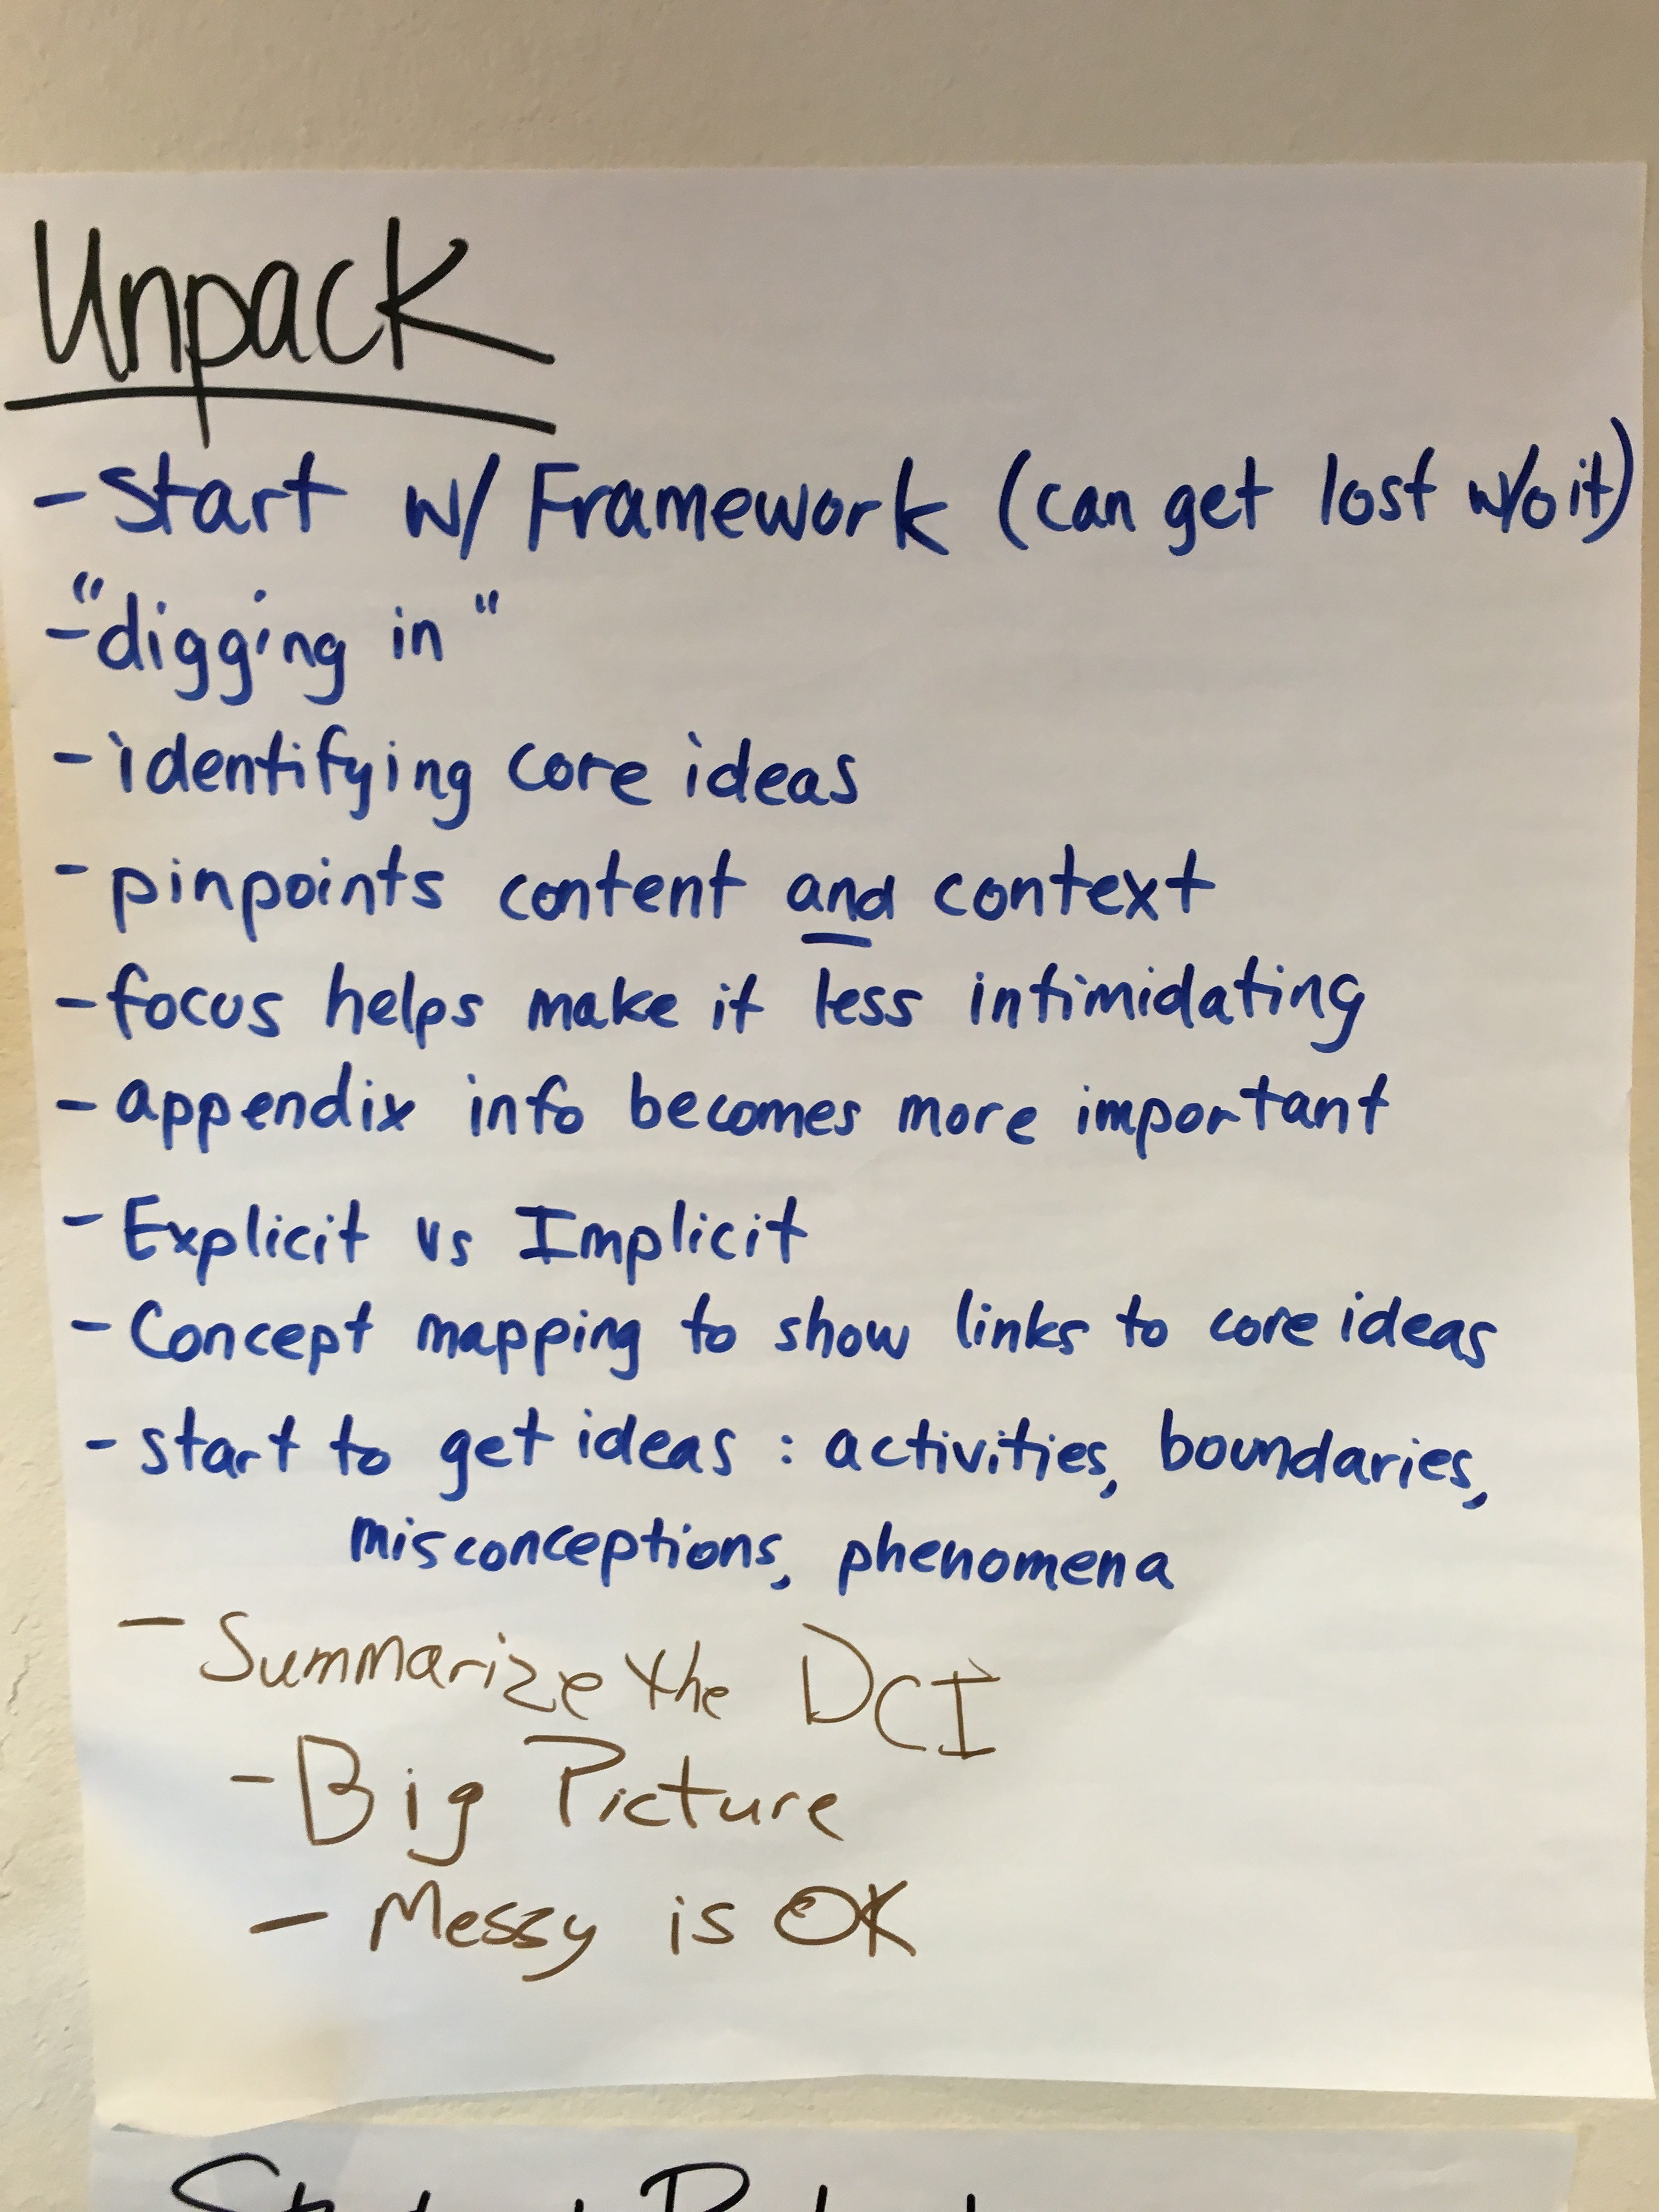 Unpack
- Start w/ Framework (can get lost w/o it)
- "digging in"
- identifying core ideas
- pinpoints content and context
- focus helps make it less intimidating
- appendix info becomes more important
- Explicit vs Implicit
- Concept mapping to show links to core ideas
- start to get ideas : activities, boundaries,
misconceptions, phenomena
- Summarize the DCI
- Big Picture
- Messy is OK